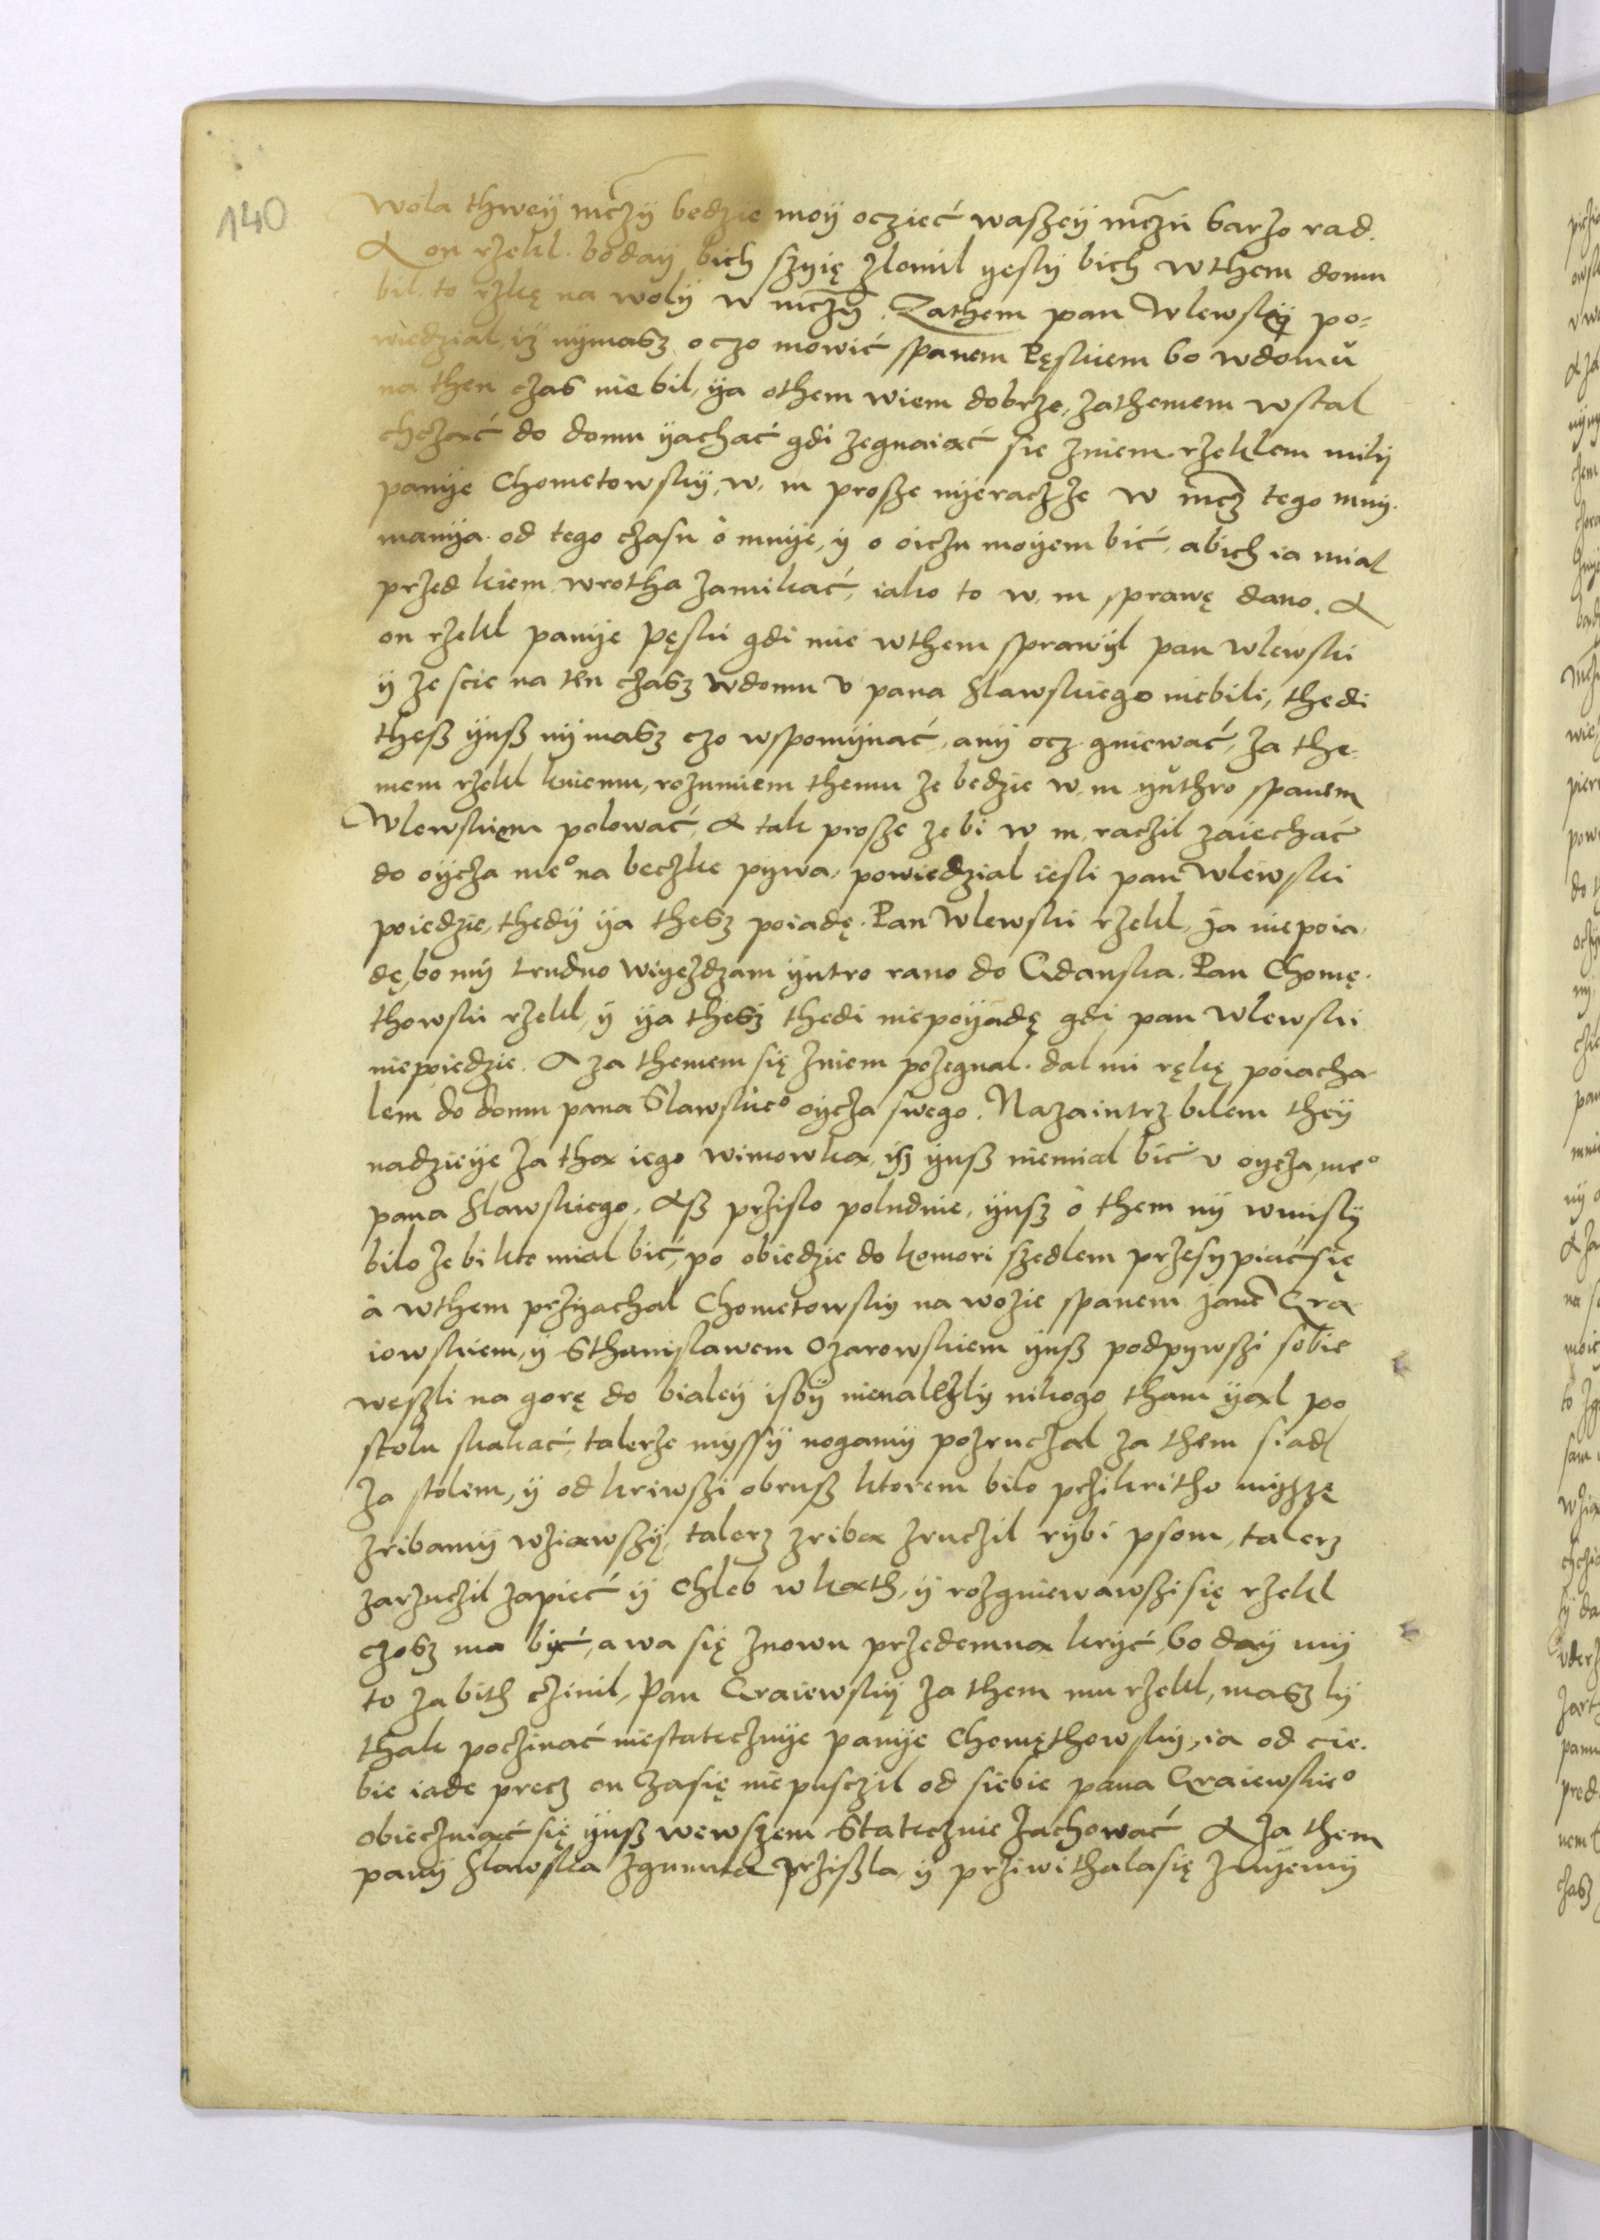 140
wola thwey mczÿ bedzie moÿ oczieć waszeÿ mczii barzo rad.
A on rzekl. bodaÿ bich szyię zlomil yeslÿ bich wthem domu
bil. to rzkę na wolÿ w mczÿ. Zathem pan Wlewskÿ po=
wiedzial, iz nymasz o czo mowić spanem Pęskiem bo wdomu
na then czas nie bil, ÿa othem wiem dobrze, zathemem wstal
chcząć do domu ÿachać gdi zegnaiąć sie zniem rzeklem milÿ
panÿe Chometowskÿ, w. m prosze nÿeraczże w mcz tego mnÿ.
manÿa od tego czasu o mnÿe, ÿ o oiczu moÿem bić, abich ia mial
przed kiem wrotha zamikać, iako to w. m sprawę dano. A
on rzekl panÿe Pęski gdi mie wthem sprawÿl pan Wlewski
ÿ ze scie na ten czasz wdomu v pana Slawskiego niebili, thedi
thesz ÿusz nÿmasz czo wspomÿnać, anÿ ocz gniewać, za the-
mem rzekl kniemu, rozumiem themu ze bedzie w. m ÿuthro spanem
Wlewskiem polować, A tak prosze ze bi w m. raczil zaiechać
do oÿcza meº na beczke pywa, powiedzial iesli pan Wlewski
poiedzie, thedÿ ÿa thesz poiadę. Pan Wlewski rzekl, ja niepoia-
dę, bo mÿ trudno wiÿezdzam ÿutro rano do Gdanska. Pan Chomę-
thowski rzekl, ÿ ÿa thesz thedi niepoÿadę gdi pan Wlewski
niepoiedzie. A za themem się zniem pożegnal. dal mi rękę poiacha-
lem do domu pana Slawskieº oÿcza swego. Nazaiutrz bilem theÿ
nadzieÿe za thą iego wimowką, ÿsz ÿusz niemial bić v oÿcza, meº
pana Slawskiego, Asz przislo poludnie, ÿusz o them nÿ wmislÿ
bilo że bi kto mial bić, po obiedzie do komori szedlem przesypiać się
a wthem przÿachal Chometowskÿ na wozie spanem Janē Gra-
iowskiem, ÿ Sthanislawem Ozarowskiem ÿusz podpywszi sobie
weszli na gorę do bialeÿ isbÿ nienalezlÿ nikogo tham ÿąl po
stolu skakać, talerze mÿssÿ nogamÿ pozruczal za them siadl
za stolem, ÿ odkriwszi obrusz ktorem bilo przikritho miszę
zribamÿ wziąwszÿ, talerz zribą zruczil rÿbi psom, talerz
zarzuczil zapieć ÿ chleb wkąth, ÿ rozgniewawszi się rzekl
czosz ma bÿć, awa się znowu przedemną krÿć, bo daÿ mÿ
to zabith czinil, Pan Graiewskÿ za them mu rzekl, masz lÿ
thak poczinać niestatecznÿe panÿe Chomęthowskÿ, ia od cie-
bie iade precz on zasię niepusczil od siebie pana Graiewskieº
obiecziuąć się ÿusz wewszem Statecznie zachować A za them
panÿ Slawska zgumna prziszla ÿ przÿwithala się znÿemÿ